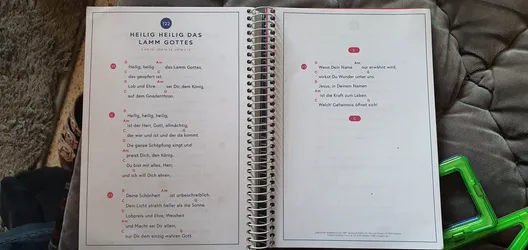 122
HEILIG HEILIG DAS
LAMM GOTTES
Heilig, heilig das Lamm Gottes,
das geopfert ist.
Lob und Ehre sei Dir, dem König,
auf dem Gnadenthron.
Heilig, heilig, heilig,
ist der Herr, Gott, allmächtig,
der war und ist und der da kommt.
Die ganze Schöpfung singt und
preist Dich, den König.
Du bist mir alles, Herr,
und ich will Dich ehren.
Deine Schönheit ist unbeschreiblich.
Dein Licht strahlt heller als die Sonne.
Lobpreis und Ehre, Weisheit
und Macht sei Dir allein,
nur Dir dem einzig wahren Gott.
C
Wenn Dein Name nur erwähnt wird,
wirkst Du Wunder unter uns.
Jesus, in Deinem Namen
ist die Kraft zum Leben.
Welch' Geheimnis öffnet sich!
C